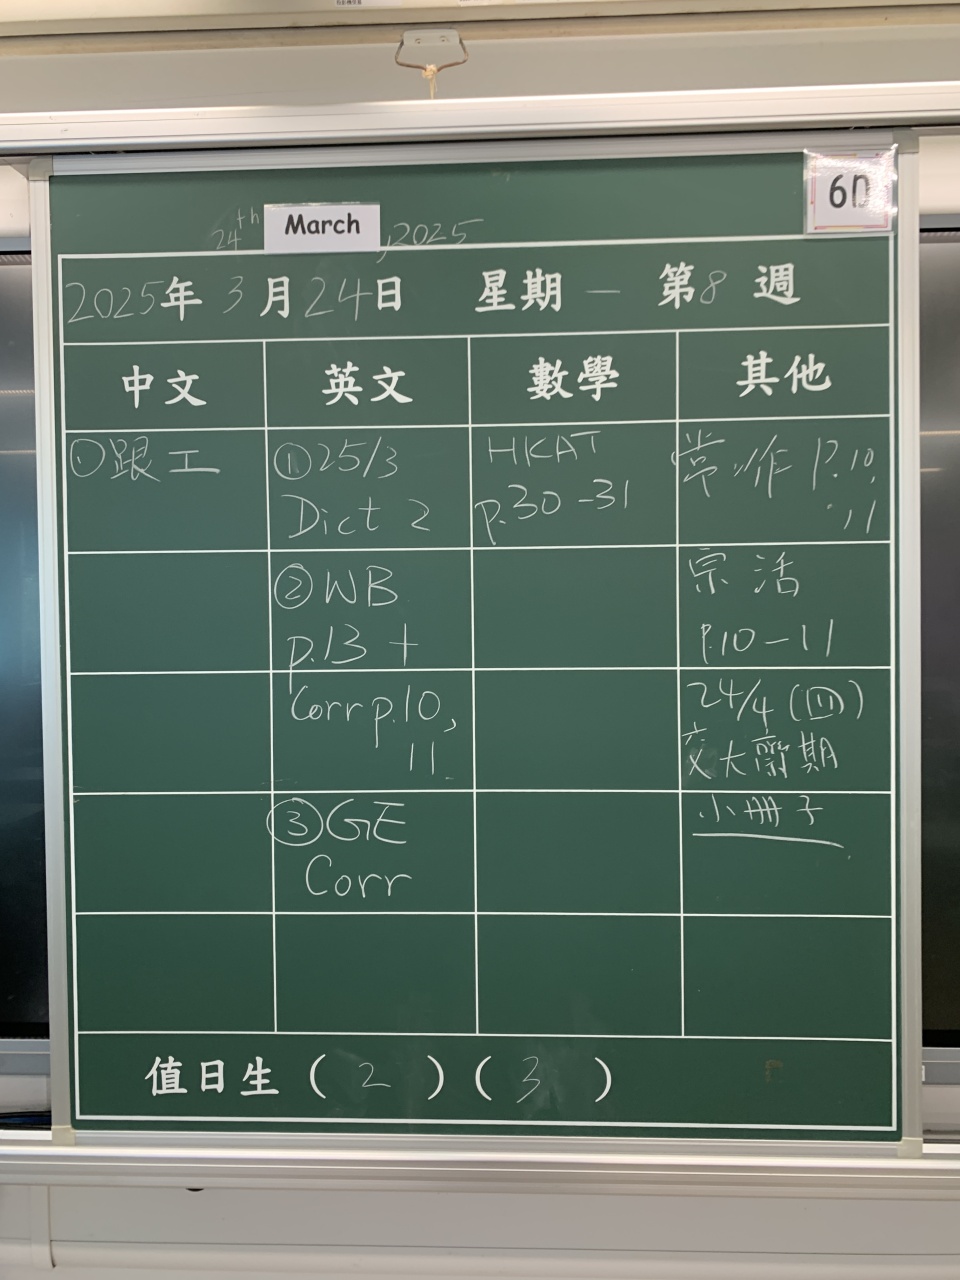 6D
24th March, 2025
2025年 3月24日 星期一 第8週
中文 英文 數學 其他
①跟工
①25/3
Dict 2
②WB
p.13 +
Corr p.10,
11
③GE
Corr
HKAT
p.30-31
常作 P.10,
11
宗活
P.10-11
24/4 (四)
交大齋期
小冊子
值日生 ( 2 ) ( 3 )